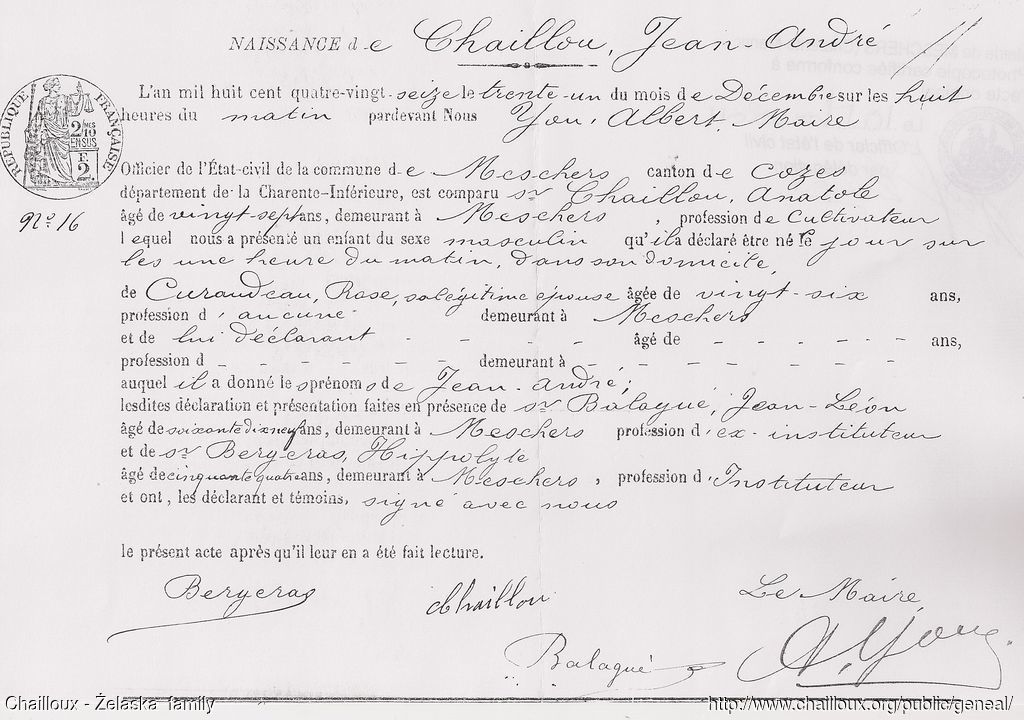 NAISSANCE de Chaillou, Jean-André
L'an mil huit cent quatre-vingt-seize le trente-un du mois de Décembre sur les huit
heures du matin pardevant Nous You, Albert, Maire
RÉPUBLIQUE FRANÇAISE
2/10 EN SUS
F. 2
Officier de l'État-civil de la commune de Meschers canton de Cozes
département de la Charente-Inférieure, est comparu sr Chaillou, Anatole
No 16
âgé de vingt-sept ans, demeurant à Meschers, profession de Cultivateur
lequel nous a présenté un enfant du sexe masculin qu'il a déclaré être né le jour sur
les une heure du matin, dans son domicile,
de Curaudeau, Rose, sa légitime épouse âgée de vingt-six ans,
profession d'aucune demeurant à Meschers
et de lui déclarant - - - - âgé de - - - - - ans,
profession d - - - - - - demeurant à - - - - - - -
auquel il a donné les prénoms de Jean-André;
lesdites déclaration et présentation faites en présence de sr Balagué, Jean-Léon
âgé de soixante dix neuf ans, demeurant à Meschers profession d'ex-instituteur
et de sr Bergeras, Hippolyte
âgé de cinquante quatre ans, demeurant à Meschers, profession d'Instituteur
et ont, les déclarant et témoins, signé avec nous
le présent acte après qu'il leur en a été fait lecture.
Bergeras Chaillou Le Maire,
Balagué A. You
Chailloux - Żelaska family http://www.chailloux.org/public/geneal/